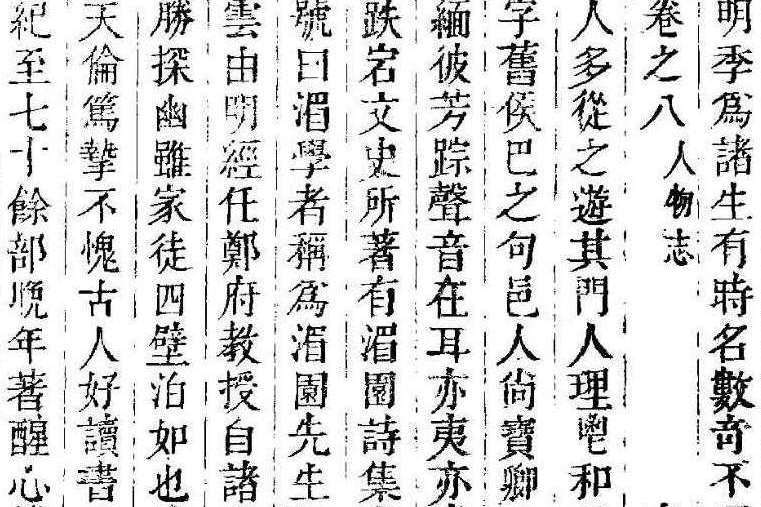 明季爲諸生有時名數奇不
卷之八 人物志
人多從之遊其門人理鬯和
字舊侯巴之句邑人尙寶卿
緬彼芳踪聲音在耳亦夷亦
跌宕文史所著有湄園詩集
號曰湄學者稱爲湄園先生
雲由明經任鄭府教授自諸
勝探幽雖家徒四壁泊如也
天倫篤摯不愧古人好讀書
紀至七十餘部晚年著醒心